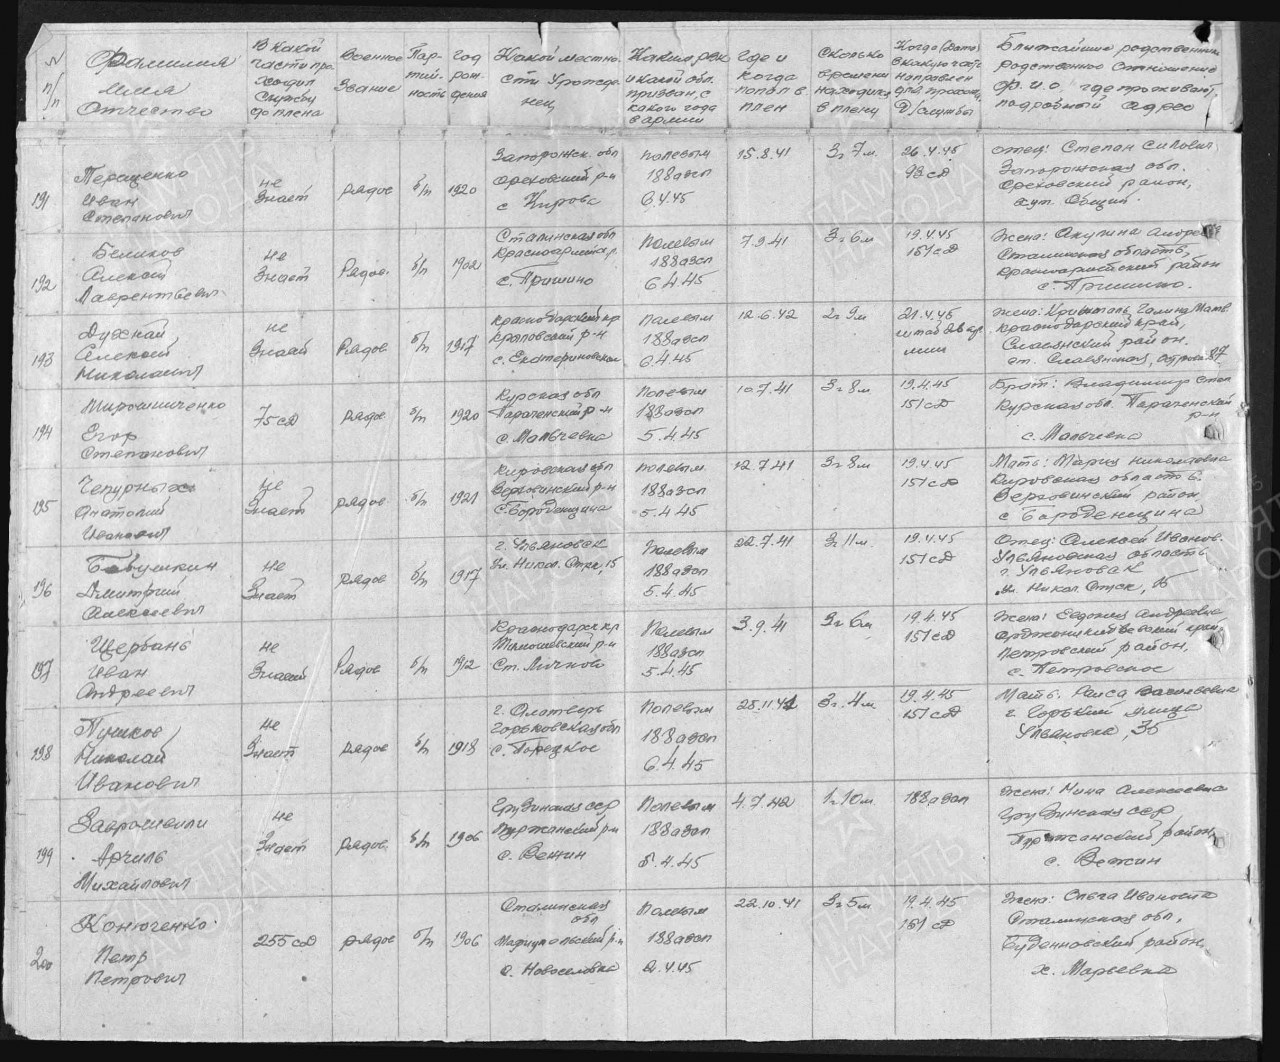 N п/п
Фамилия Имя Отчество
В какой части проходил службу до плена
Военное звание
Партийность
Год рождения
Какой местности уроженец
Каким РВК и какой обл. призван, с какого года в армии
Где и когда попал в плен
Сколько времени находился в плену
Когда (дата) в какую часть направлен для прохожд. д/службы
Ближайшие родственники родственное отношение ф.и.о., где проживают, подробный адрес
191
Терещенко
Иван
Степанович
не
знает
рядов
б/п
1920
Запорожск. обл
Ореховский р-н
с Кирово
Полевым
188 азсп
6.4.45
15.8.41
3г 7м.
26.4.45
93 сд
отец: Степан
Запорожская обл.
Ореховский район,
хут. Общий
192
Беликов
Алексей
Лаврентьевич
не
знает
Рядов.
б/п
1902
Сталинская обл
Красноармей.р.
с. Пришино
Полевым
188 азсп
6.4.45
7.9.41
3г 6м
19.4.45
151 сд
жена: Акулина
Сталинская область,
Красноармейский район
с. Пришино.
193
Духнай
Алексей
Николаевич
не
знает
Рядов
б/п
1917
Краснодарский кр
р-н
с. Екатериновская
Полевым
188 азсп
6.4.45
12.6.42
2г 9м
21.4.45
штаб 26
жена: Галина Матв.
Краснодарский край,
Славянский район.
ст. Славянская, 87
194
Мирошниченко
Егор
Степанович
75 сд
рядов
б/п
1920
Курская обл
р-н
с. Мальчевка
Полевым
188 азсп
5.4.45
10.7.41
3г 8м
19.4.45
151 сд
Брат: Владимир Степ
Курская обл.
р-н
с. Мальчевка
195
Чепурных
Анатолий
Иванович
не
знает
рядов
б/п
1921
Кировская обл
Верховинский р-н
с. Бороденщина
Полевым.
188 азсп
5.4.45
12.7.41
3г 8м
19.4.45
151 сд
Мать: Мария
Кировская область.
Верховинский район
с Бороденщина
196
Бабушкин
Дмитрий
Алексеевич
не
знает
рядов
б/п
1917
г. Ульяновск
Ул. Никол. 15
Полевым
188 азсп
5.4.45
22.7.41
3г 11м.
19.4.45
151 сд
Отец: Алексей Иванов.
Ульяновская область
г. Ульяновск
ул. Никол. 15
197
Щербань
Иван
Андреевич
не
знает
Рядов
б/п
1912
Краснодарск кр
Тимошевский р-н
Ст.
Полевым
188 азсп
5.4.45
3.9.41
3г 6м
19.4.45
151 сд
жена: Евдокия Андреевна
Орджоникидзевский край
Петровский район,
с. Петровское
198
Пчиков
Николай
Иванович
не
знает
рядов
б/п
1918
г. Алатырь
Горьковская обл
с. Порецкое
Полевым
188 азсп
6.4.45
3г. 4м.
19.4.45
151 сд
Мать: Раиса Васильевна
г. Горький улица
Ульяновка, 35
199
Заврошвили
Арчиль
Михайлович
не
знает
рядов,
б/п
1906
Грузинская сср
р-н
с. Вежин
Полевым
188 азсп
5.4.45
4.7.42
1г 10м.
188 азсп
Жена: Нина Алексеевна
Грузинская сср
район,
с. Вежин
200
Конюченко.
Петр
Петрович
255 сд
рядов
б/п
1906
Сталинская
обл
Мариупольский р-н
с. Новоселовка
Полевым
188 азсп
2.4.45
22.10.41
3г 5м
19.4.45
151 сд
жена: Ольга Ивановна
Сталинская обл,
Буденновский район,
х. Марьевка
ПАМЯТЬ
НАРОДА